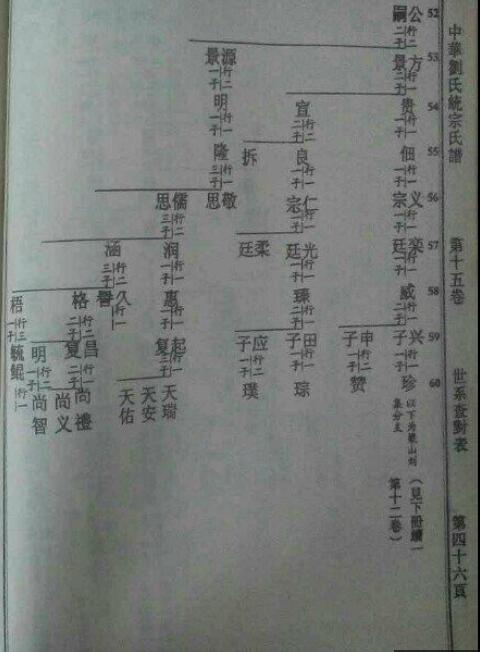 中華劉氏統宗氏譜
第十五卷
世系查對表
第四十六頁
52
公嗣 行二 二子
53
方景 行一 二子
源景 行二 一子
54
贵 行一 一子
宣 行二 二子
明 行一 一子
55
佃 行一 一子
良 行一 一子
拆
隆 行一 三子
56
义宗 行一 一子
仁宗 行一 二子
敬思
儒思 行二 三子
57
栾廷 行一 一子
光廷 行一 一子
柔廷
润 行一 一子
涵 行二 三子
58
威 行一 二子
臻 行一 二子
惠 行一 一子
久譽 行一
格 行二 二子
梧 行三 一子
59
兴子 行一 一子
申子 行二 一子
田子 行一 一子
应子 行二 一子
起复 行一 三子
昌复 行一 二子
明 行二 一子
毓鲲 行一
60
珍
赞
琮
璞
天瑞
天安
天佑
尚禮
尚义
尚智
集分支
(見下冊續一
第十二卷)